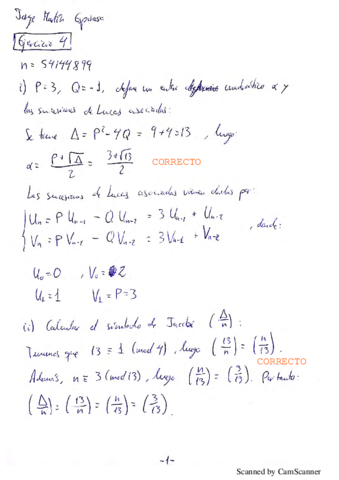 Jorge Martín Espinosa
Ejercicio 4
n = 54144899
i) P=3, Q=-1, define un entero cuadrático α y
las sucesiones de Lucas asociadas:
Se tiene Δ = P² - 4Q = 9 + 4 = 13, luego
α = (P+√Δ)/2 = (3+√13)/2 CORRECTO
Las sucesiones de Lucas asociadas vienen dadas por:
Uₙ = P Uₙ₋₁ - Q Uₙ₋₂ = 3 Uₙ₋₁ + Uₙ₋₂
Vₙ = P Vₙ₋₁ - Q Vₙ₋₂ = 3Vₙ₋₁ + Vₙ₋₂ , donde:
U₀ = 0 , V₀ = 2
U₁ = 1 V₁ = P = 3
ii) Calcular el símbolo de Jacobi (Δ/n):
Tenemos que 13 ≡ 1 (mod 4), luego (13/n) = (n/13).
CORRECTO
Además, n ≡ 3 (mod 13), luego (n/13) = (3/13). Por tanto:
(Δ/n) = (13/n) = (n/13) = (3/13).
-1-
Scanned by CamScanner